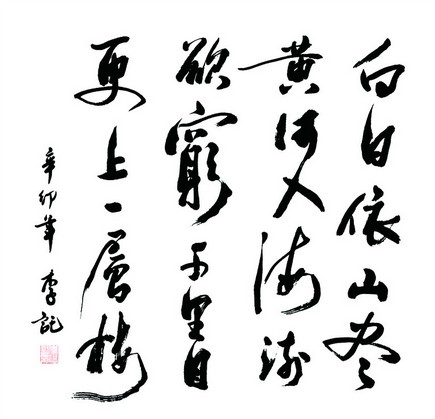 白日依山尽
黄河入海流
欲窮千里目
更上一層楼
辛卯年 李